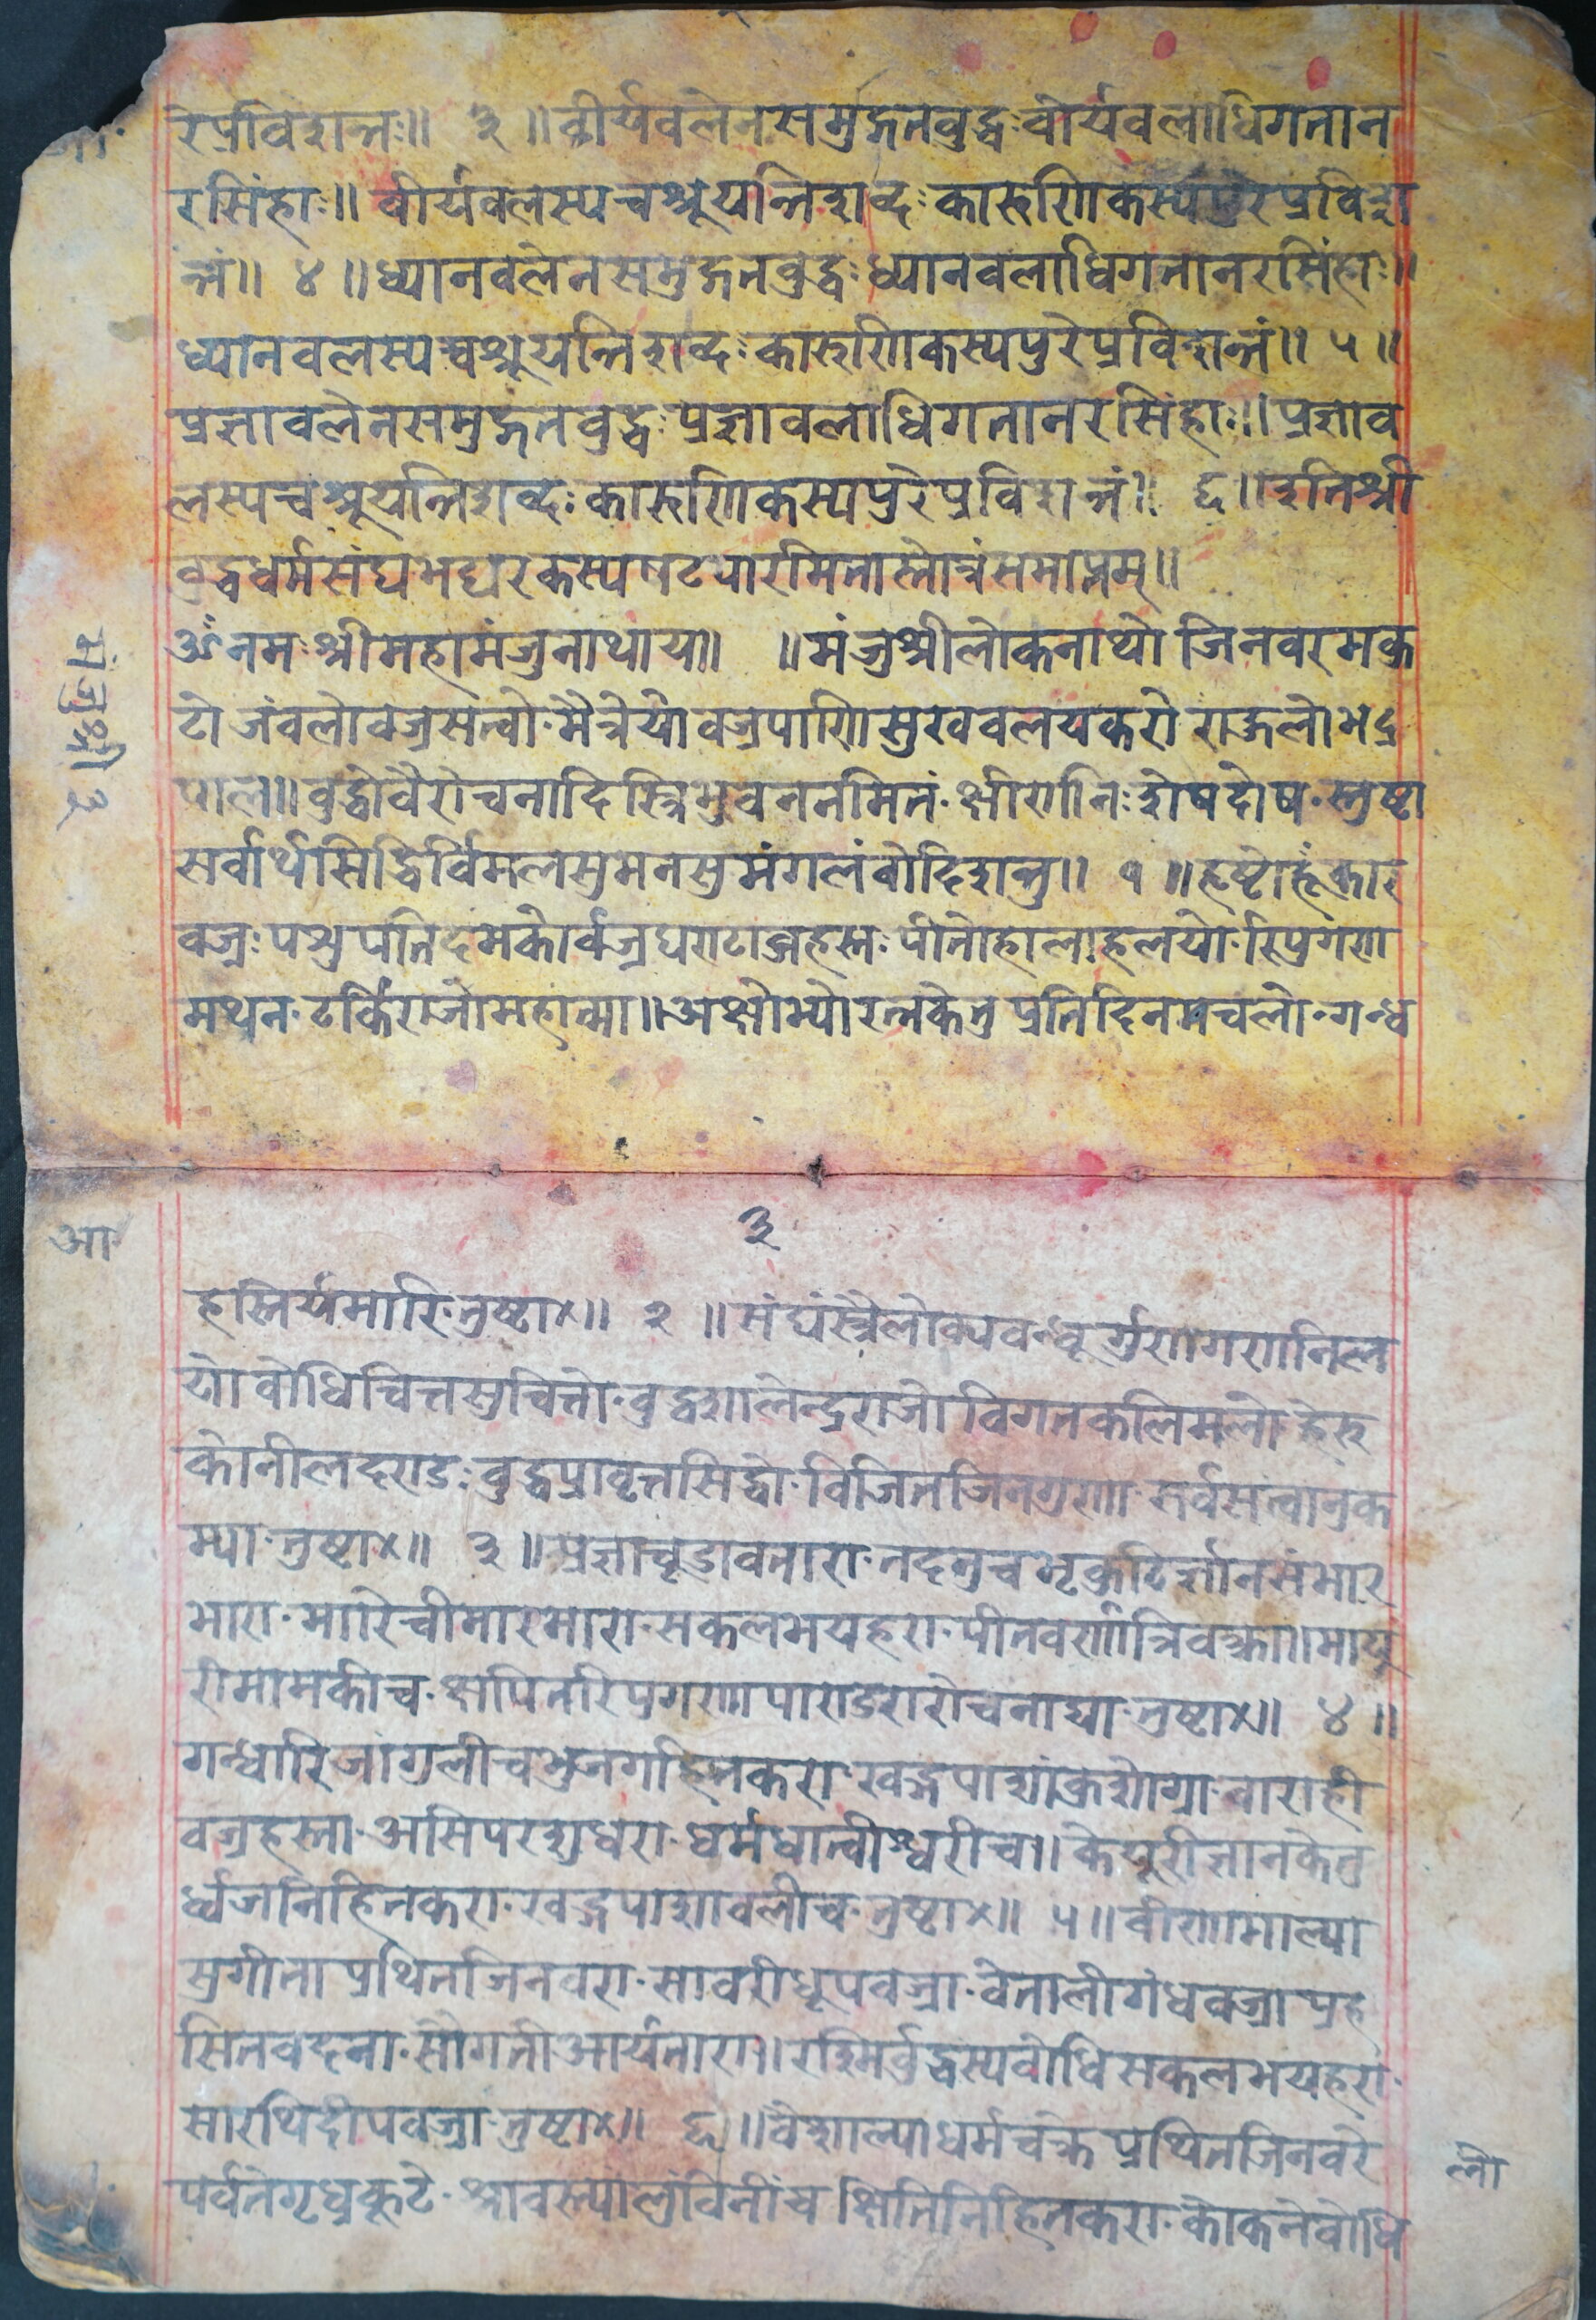 रेप्रविशन्तः॥ ३ ॥वीर्यवलेनसमुद्गतवुद्धःवीर्यवलाधिगतान
रसिंहाः॥ वीर्यवलस्यचश्रूयन्तिशव्दःकारुणिकस्यपुरेप्रविशा
न्तं॥ ४ ॥ध्यानवलेनसमुद्गतवुद्धःध्यानवलाधिगतानरसिंहाः॥
ध्यानवलस्यचश्रूयन्तिशव्दःकारुणिकस्यपुरेप्रविशान्तं॥ ५ ॥
प्रज्ञावलेनसमुद्गतवुद्धःप्रज्ञावलाधिगतानरसिंहाः॥प्रज्ञाव
लस्यचश्रूयन्तिशव्दःकारुणिकस्यपुरेप्रविशान्तं॥ ६ ॥इतिश्री
वुद्धधर्मसंघभट्टारकस्यषटपारमितास्तोत्रंसमाप्तम्॥
ॐनमःश्रीमहामंजुनाथाय॥ ॥मंजुश्रीलोकनाथो जिनवरमकु
टो जंवलोवज्रसत्वो·मैत्रेयोवज्रपाणिसुखवलयकरो राऊलोभद्र
पाल॥वुद्धोवैरोचनादिस्त्रिभुवननमितं·क्षीणनिःशेषदोष·स्तुष्टा
सर्वार्थसिद्धिर्विमलसुमनसुमंगलंवोदिशन्तु॥ १ ॥हृष्टोहूंकार
वज्रःपशुपतिदमकोर्वज्रघण्टाब्जहस्तःपीतोहालाहलयो·रिपुगण
मथन·टर्किराजोमहात्मा॥अक्षोभ्योरत्नकेतुप्रतिदिनमचलो·गन्ध
मंजुश्री २
३
आ
हस्तिर्यमारि·तुष्टा×॥ २ ॥संघंस्त्रैलोक्यवन्धूर्गुणगणनिल
यो वोधिचित्तसुचित्तो·वुद्धशालेन्द्रराजो विगतकलिमलो·हेरु
कोनीलदण्डःवुद्धप्रावृत्तसिद्धो·विजितजिनगुणा·सर्वसत्वानुक
म्पा·तुष्टा×॥ ३ ॥प्रज्ञाचूडावतारा·तदनुचभृकुटिर्ज्ञानसंभार
भारा·मारिचीमारमारो·सकलभयहरा·पीतवर्णात्रिवक्त्रा॥मायु
रीमामकीच·क्षपितरिपुगणापाण्डरारोचनाद्या·तुष्टा×॥ ४ ॥
गन्धारिजांगुलीचभुजगहितकरो·खड्गपाशांकुशोग्रा·वाराही
वज्रहस्ता·असिपरशुधरा·धर्मधात्वीश्वरीच॥केयूरीज्ञानकेतु
र्ध्वजनिहितकरा·खड्गपाशावलीच·तुष्टा×॥ ५ ॥वीणामाल्या
सुगीता प्रथितजिनवरा·सावरीधूपवज्रा·वेतालीगंधवज्रा प्रह
सितवदना·सौगतीआर्यतारा॥रश्मिर्वुद्धस्यवोधिसकलभयहरो·
सारथिदीपवज्रा·तुष्टा×॥ ६ ॥वैशाल्याधर्मचक्र प्रथितजिनवरे
पर्वतेगृध्रकूटे·श्रावस्त्यांलुंविनींच क्षितिनिहितकरा·कोकनेवोधि
लो